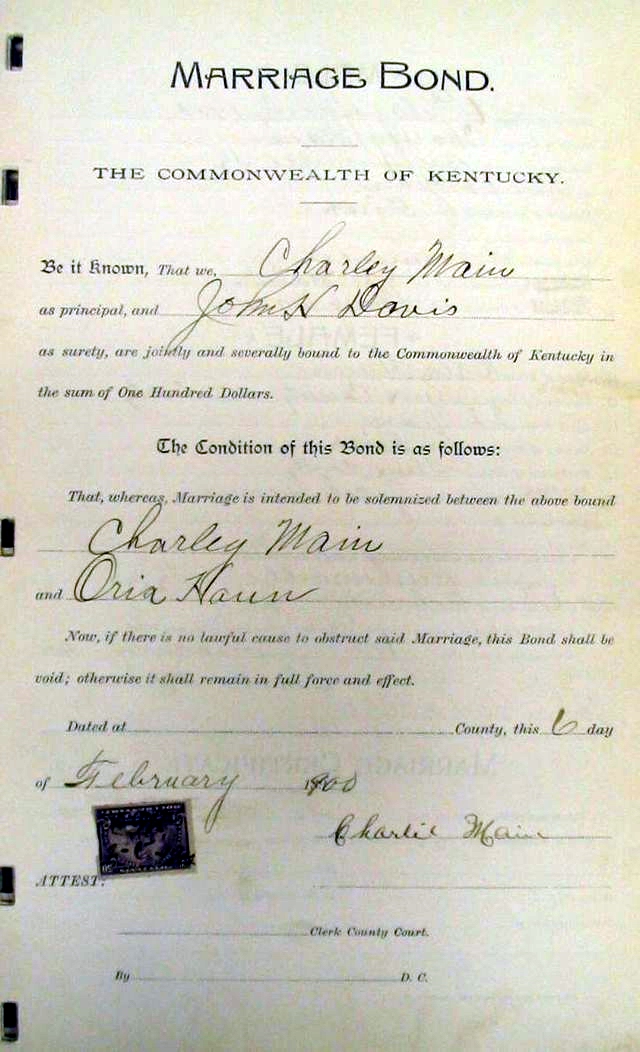 MARRIAGE BOND.
THE COMMONWEALTH OF KENTUCKY.
Be it Known, That we, Charley Main
as principal, and John H Davis
as surety, are jointly and severally bound to the Commonwealth of Kentucky in
the sum of One Hundred Dollars.
The Condition of this Bond is as follows:
That, whereas, Marriage is intended to be solemnized between the above bound
Charley Main
and Oria Haun
Now, if there is no lawful cause to obstruct said Marriage, this Bond shall be
void; otherwise it shall remain in full force and effect.
Dated at County, this 6 day
of February 1900
Charlie Main
ATTEST:
Clerk County Court.
By D. C.